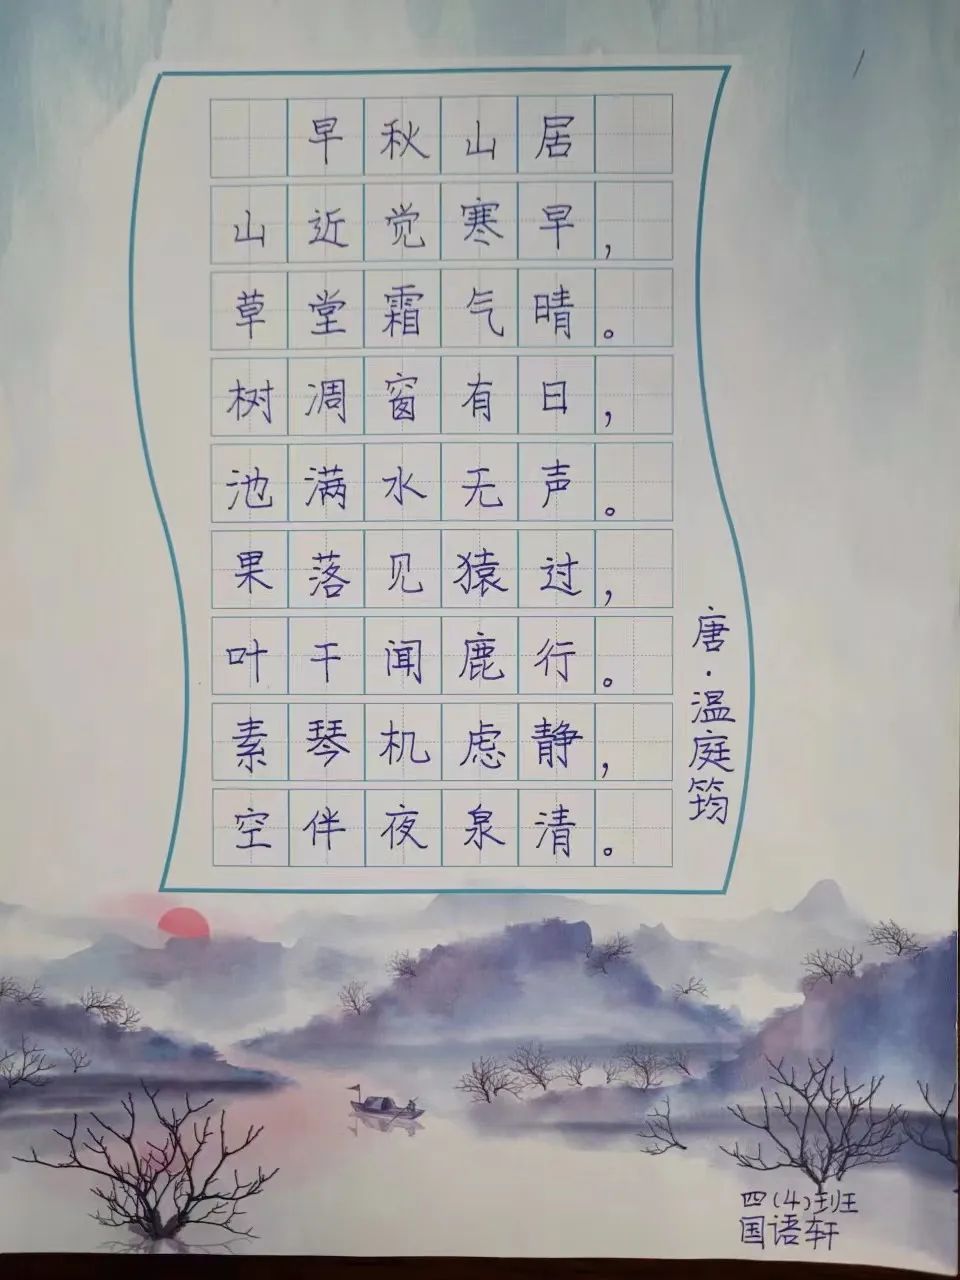 早秋山居
山近觉寒早，
草堂霜气晴。
树凋窗有日，
池满水无声。
果落见猿过，
叶干闻鹿行。
素琴机虑静，
空伴夜泉清。
唐·温庭筠
四(4)班
国语轩